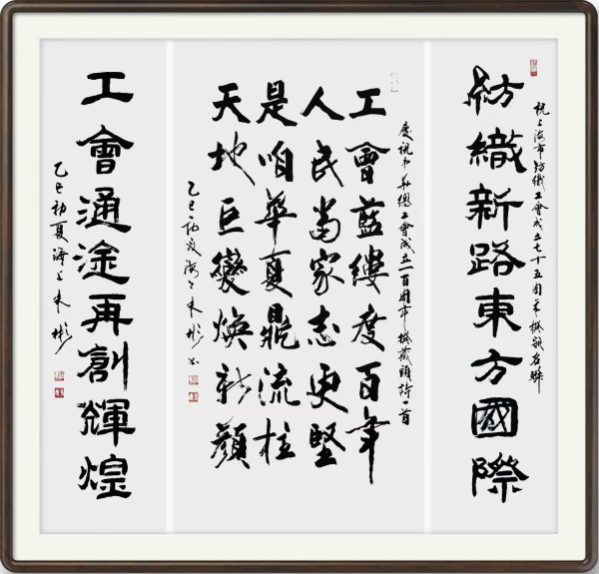 祝上海市纺織工會成立七十五周年撰嵌名聯
紡織新路東方國際
慶祝中華總工會成立一百周年撰藏頭詩一首
工會藍縷度百年
人民當家志更堅
是咱華夏鼎流柱
天地巨變煥新顏
乙巳初夏海上朱彬书
工會通途再創輝煌
乙巳初夏海上朱彬